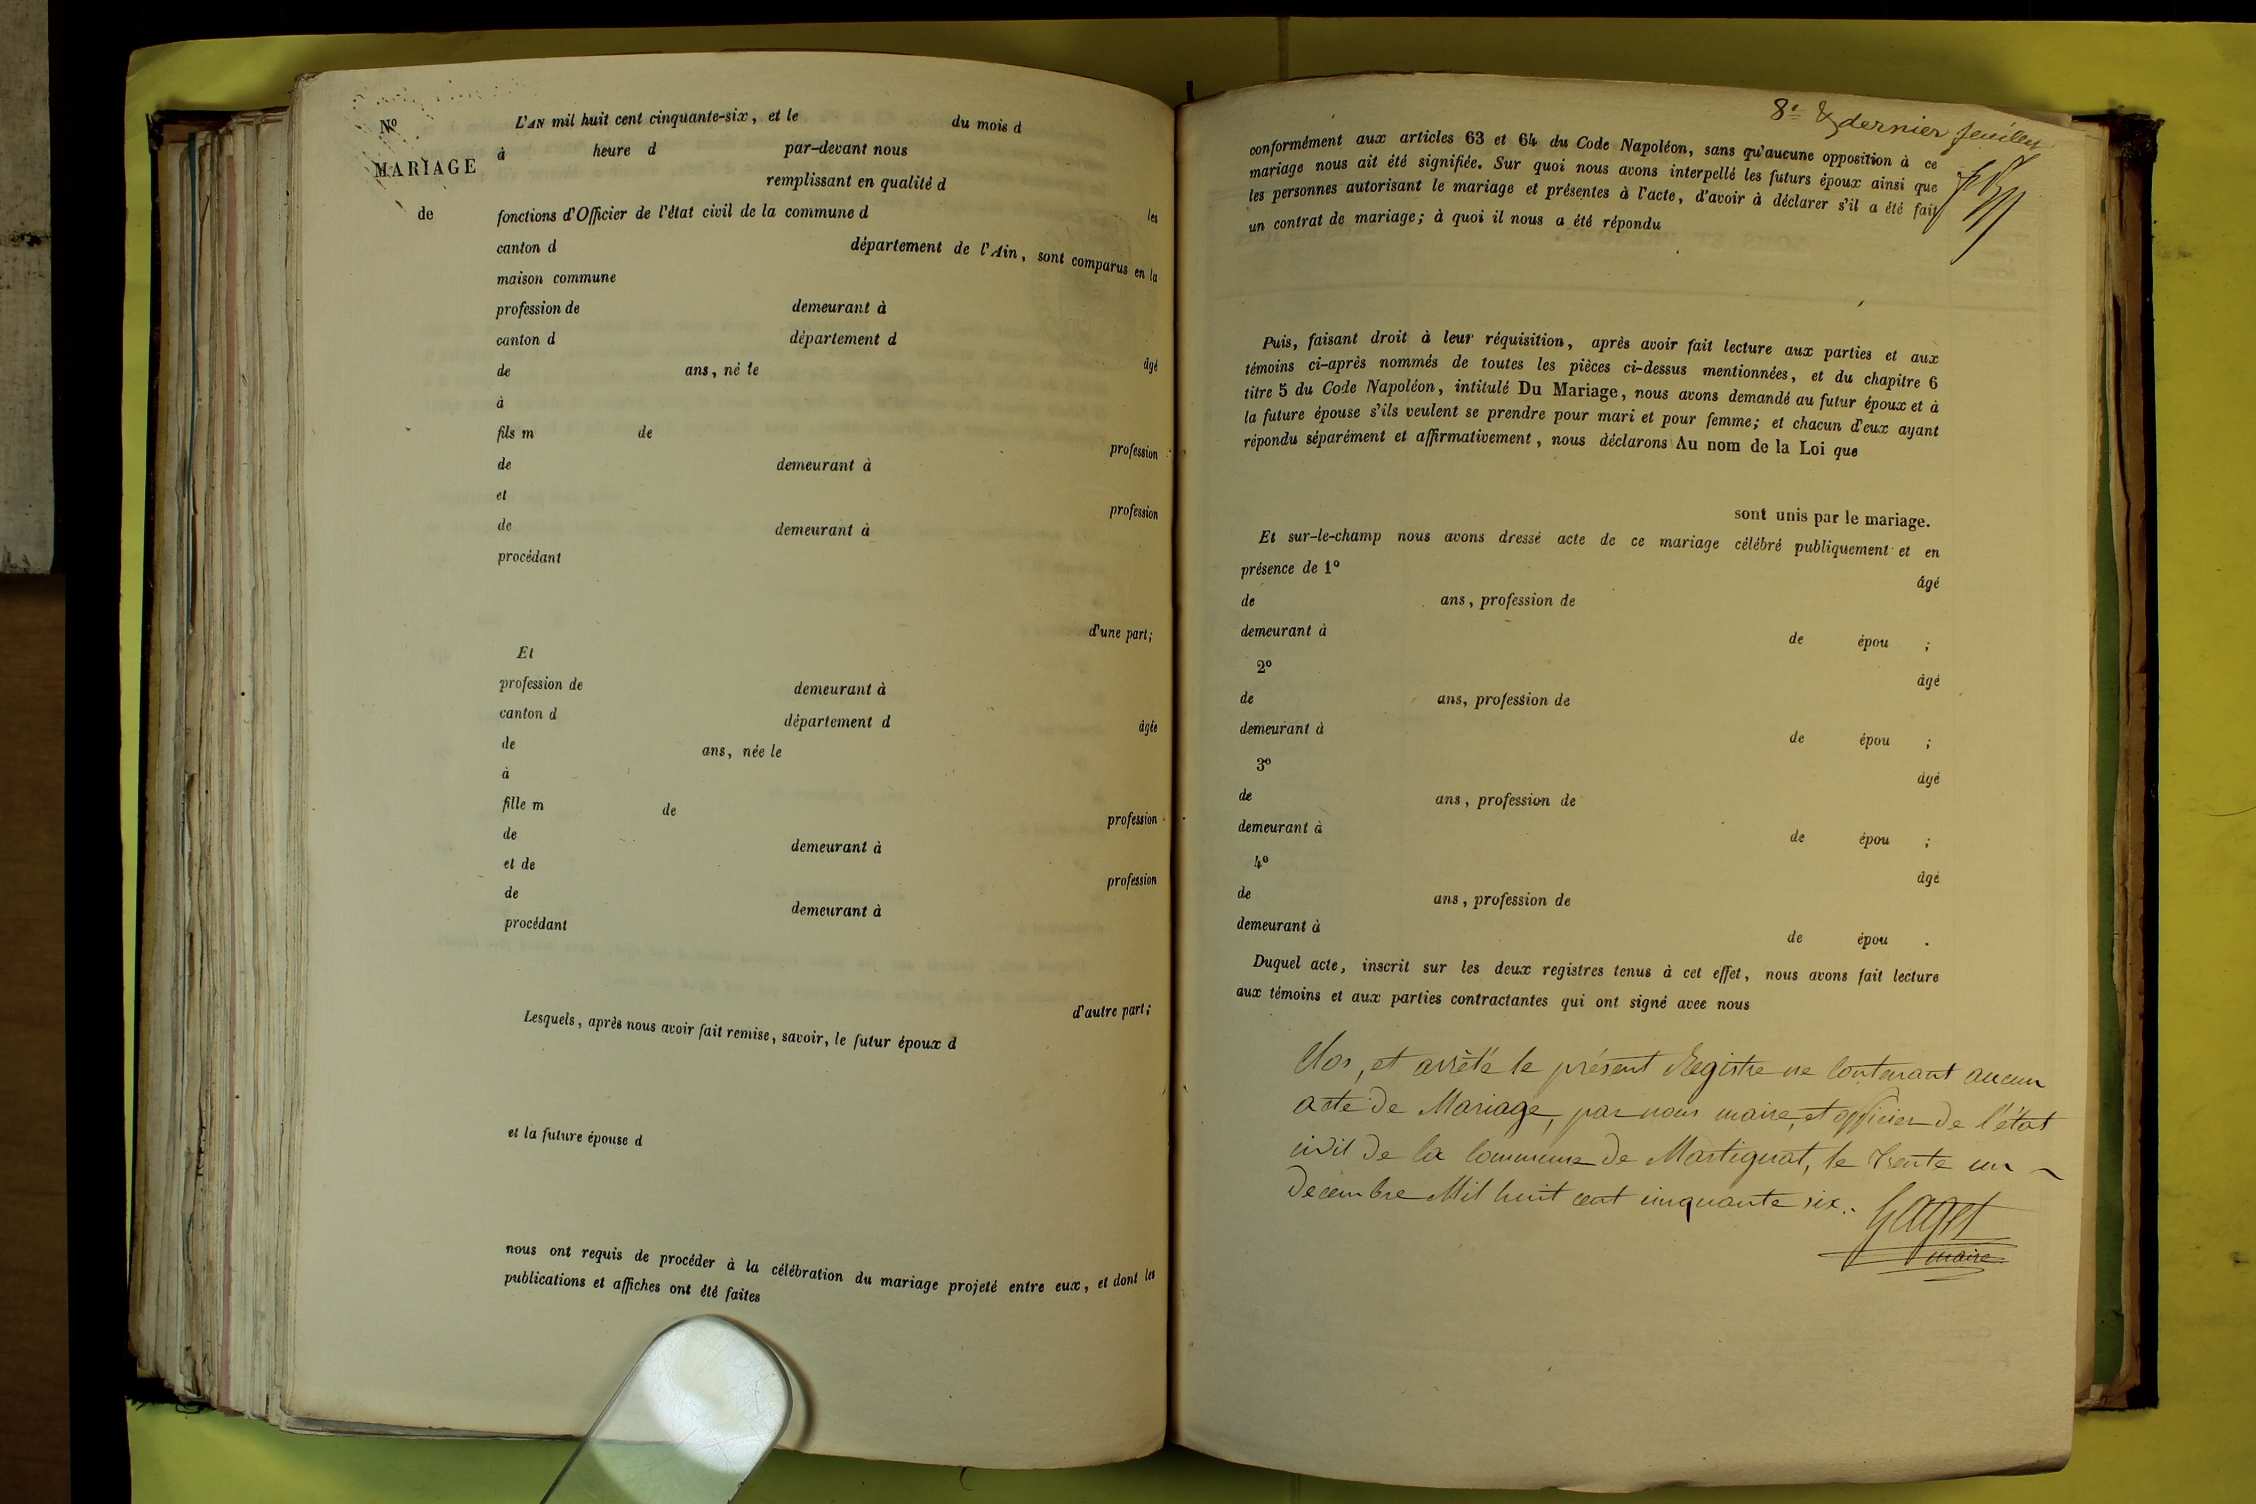 N.º
MARIAGE
de
L'AN mil huit cent cinquante-six, et le du mois d
à heure d par-devant nous
remplissant en qualité d les
fonctions d'Officier de l'état civil de la commune d
canton d département de l'Ain, sont comparus en la
maison commune
profession de demeurant à
canton d département d âgé
de ans, né le
à
fils m de profession
de demeurant à
et profession
de demeurant à
procédant
d'une part;
Et
profession de demeurant à
canton d département d âgée
de ans, née le
à
fille m de profession
de demeurant à
et de profession
de demeurant à
procédant
d'autre part;
Lesquels, après nous avoir fait remise, savoir, le futur époux d
et la future épouse d
nous ont requis de procéder à la célébration du mariage projeté entre eux, et dont les
publications et affiches ont été faites
8.e & dernier feuillet
conformément aux articles 63 et 64 du Code Napoléon, sans qu'aucune opposition à ce
mariage nous ait été signifiée. Sur quoi nous avons interpellé les futurs époux ainsi que
les personnes autorisant le mariage et présentes à l'acte, d'avoir à déclarer s'il a été fait
un contrat de mariage; à quoi il nous a été répondu
Puis, faisant droit à leur réquisition, après avoir fait lecture aux parties et aux
témoins ci-après nommés de toutes les pièces ci-dessus mentionnées, et du chapitre 6
titre 5 du Code Napoléon, intitulé Du Mariage, nous avons demandé au futur époux et à
la future épouse s'ils veulent se prendre pour mari et pour femme; et chacun d'eux ayant
répondu séparément et affirmativement, nous déclarons Au nom de la Loi que
sont unis par le mariage.
Et sur-le-champ nous avons dressé acte de ce mariage célébré publiquement et en
présence de 1º âgé
de ans, profession de
demeurant à de épou ;
2º âgé
de ans, profession de
demeurant à de épou ;
3º âgé
de ans, profession de
demeurant à de épou ;
4º âgé
de ans, profession de
demeurant à de épou .
Duquel acte, inscrit sur les deux registres tenus à cet effet, nous avons fait lecture
aux témoins et aux parties contractantes qui ont signé avec nous
Clos, et arrêté le présent Registre ne contenant aucun
acte de Mariage, par nous maire, et officier de l'état
civil de la commune de Martignat, le trente un
décembre Mil huit cent cinquante six.
Gaget
maire